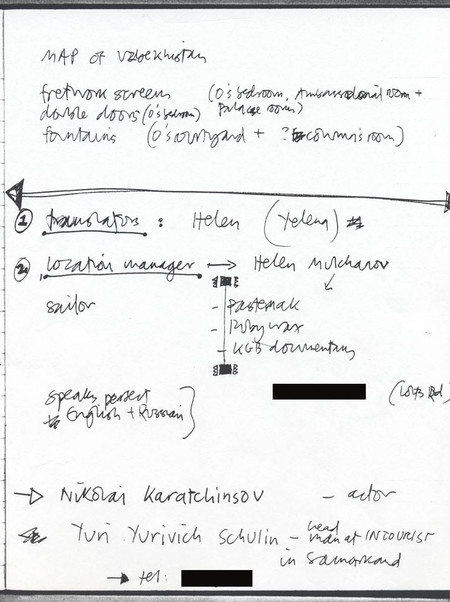 MAP OF Uzbekhistan
fretwork screens (O's bedroom, Ambassadorial room +
double doors (O's bedroom) Palace room)
fountains (O's courtyard + ? conn's room)
① translators : Helen (Yelena)
② location manager → Helen Mulchanov
sailor
- Pasternak
- Ruby wax
- KGB documentary
speaks perfect
English + Russian }
→ Nikolai Karatchinsov - actor
Yuri Yurivich Schulin - head
man at INTOURIST
in Samarkand
→ tel: